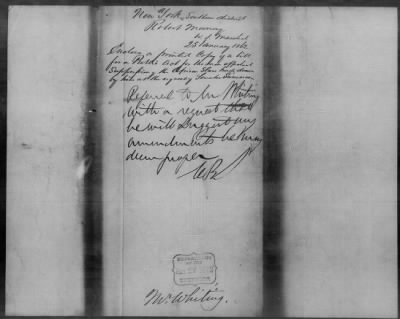 New York, Southern district
Robert Murray
U.S. Marshal
25 January 1862
Incloses a printed Copy of a bill
for a Public Act for the more effectual
Suppression of the African Slave trade, drawn
by him at the of Senator
Referred to Mr Whiting
with a request that
he will Suggest any
amendments he may
deem proper
Mr. Whiting.